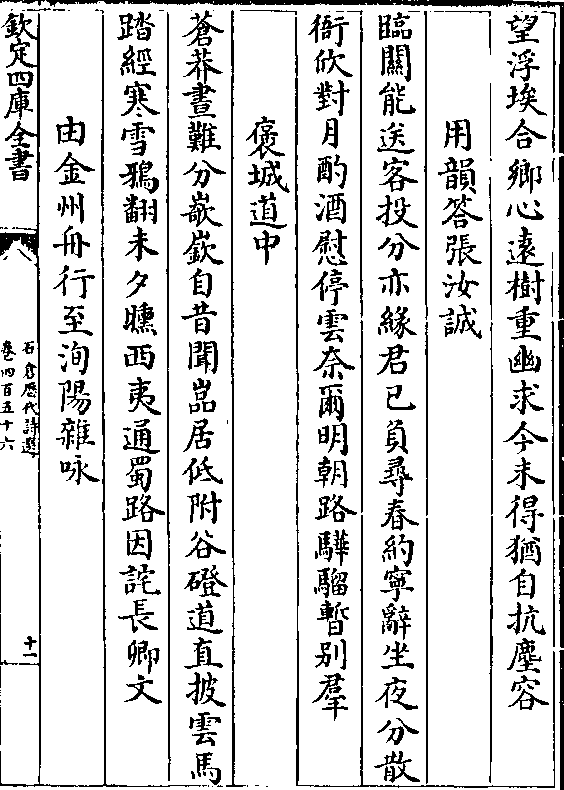 望浮埃合鄉心遠樹重幽求今未得猶自抗塵容
用韻答張汝誠
臨關能送客投分亦緣君已負尋春約寧辭坐夜分散
衙欣對月酌酒慰停雲奈爾明朝路驊騮暫别羣
褒城道中
蒼莽晝難分嶔嶔自昔聞嵓居低附谷磴道直披雲馬
踏經寒雪鴉翻未夕曛西夷通蜀路因詫長卿文
由金州舟行至洵陽雜咏
欽定四庫全書
石倉歷代詩選
卷四百五十六
十一